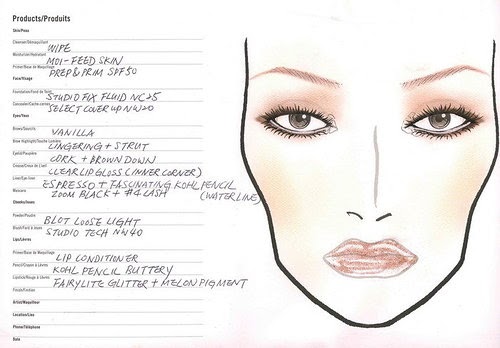 Products/Produits
Skin/Peau
Cleanser/Démaquillant
WIPE
Moisturizer/Hydratant
MOI-FEED SKIN
Primer/Base de Maquillage
PREP & PRIM SPF50
Face/Visage
Foundation/Fond de teint
STUDIO FIX FLUID NC25
Concealer/Cache-cernes
SELECT COVER UP NW20
Eyes/Yeux
Brows/Sourcils
VANILLA
Brow Highlight/Touche Lumière
LINGERING + STRUT
Eyelid/Paupière
CORK + BROWN DOWN
Crease/Creux de L'oeil
CLEAR LIPGLOSS (INNER CORNER)
Liner/Eye-liner
ESPRESSO + FASCINATING KOHL PENCIL
Mascara
ZOOM BLACK + #4 LASH (WATERLINE)
Cheeks/Joues
Powder/Poudre
BLOT LOOSE LIGHT
Blush/Fard à Joues
STUDIO TECH NW40
Lips/Lèvres
Primer/Base de Maquillage
LIP CONDITIONER
Pencil/Crayon à Lèvres
KOHL PENCIL BUTTERY
Lipstick/Rouge à Lèvres
FAIRYLITE GLITTER + MELON PIGMENT
Finish/Finition
Artist/Maquilleur
Location/Lieu
Phone/Téléphone
Date